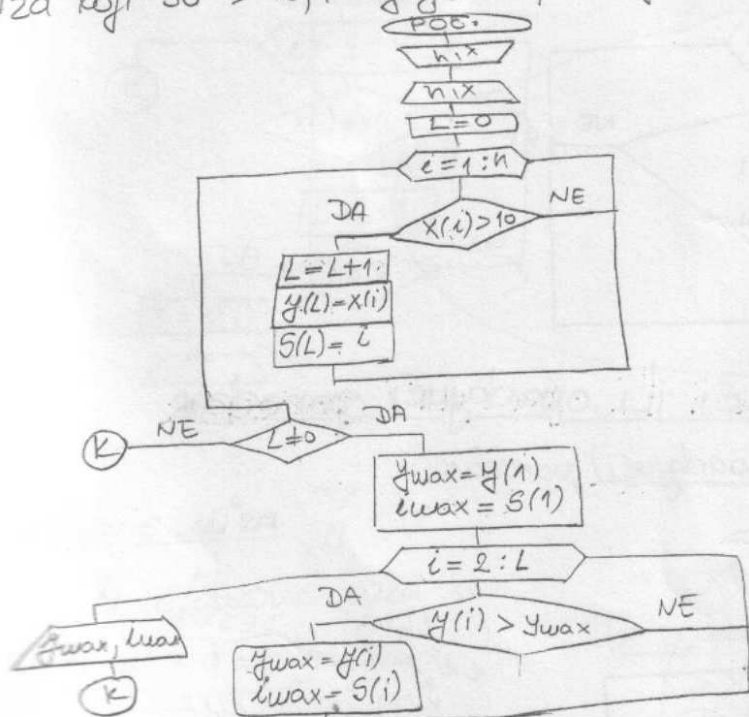 za koji su
POČ.
n, x
n, x
L = 0
i = 1 : n
DA
x(i) > 10
NE
L = L+1
y(L) = x(i)
S(L) = i
K
NE
L ≠ 0
DA
ymax = y(1)
imax = S(1)
i = 2 : L
DA
y(i) > ymax
NE
ymax, imax
ymax = y(i)
imax = S(i)
K